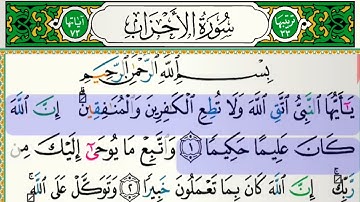 ترتيبها ٣٣ سُورَةُ الأَحْزَابِ آياتها ٧٣
بِسْمِ اللَّهِ الرَّحْمَٰنِ الرَّحِيمِ
يَـٰٓأَيُّهَا النَّبِىُّ اتَّقِ اللَّهَ وَلَا تُطِعِ الْكَـٰفِرِينَ وَالْمُنَـٰفِقِينَ ۗ إِنَّ اللَّهَ
كَانَ عَلِيمًا حَكِيمًا ١ وَاتَّبِعْ مَا يُوحَىٰٓ إِلَيْكَ مِن
رَّبِّكَ ۚ إِنَّ اللَّهَ كَانَ بِمَا تَعْمَلُونَ خَبِيرًا ٢ وَتَوَكَّلْ عَلَى اللَّهِ ۚ